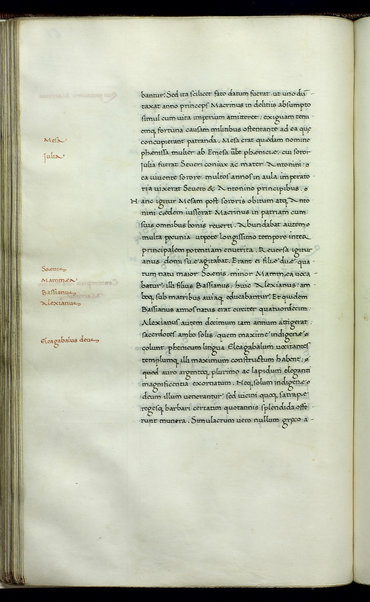 bantur. Sed ita scilicet fato datum fuerat ut uno du
taxat anno princeps Macrinus in delitiis absumpto
simul cum vita imperium amitteret, exiguam tenu
emq, fortuna causam militibus ostentante ad ea que
concupierant patranda. Mesa erat quedam nomine
Mesa
phenissa mulier ab Emesa urbe phenicie, cui soror
Julia
Julia fuerat Severi coniux ac mater Antonini: e
ea vivente sorore multos annos in aula imperato
ria vixerat Severo & Antonino principibus.
Hanc igitur Mesam post sororis obitum atq, Anto
nini cædem iusserat Macrinus in patriam cum
suis omnibus bonis reverti. Abundabat autem
multa pecunia utpote longissimo tempore intra
principalem potentiam enutrita. Reversa igitur
anus domi sue agitabat. Erant ei filie due qua
Soemis
rum natu maior Soemis minor Mammea voca
Mammea
batur: illi filius Bassianus, huic Alexianus: am
Bassianus
boq, sub matribus aviaq, educabantur. Et quidem
Alexianus
Bassianus annos natus erat circiter quatuordecim.
Alexianus autem decimum iam annum attigerat.
sacerdotes ambo solis, quem maxime indigene
Eleagabalus deus
colunt, phenicum lingua Eleagabalum vocitantes
templumq, illi maximum constructum habent,
quod auro argentoq, plurimo ac lapidum eleganti
magnificentia exornatum. Neq, solum indigene
deum illum venerantur sed vicini quoq, satrape
regesq, barbari certatim quotannis splendida offe
runt munera. Simulacrum vero nullum greco a